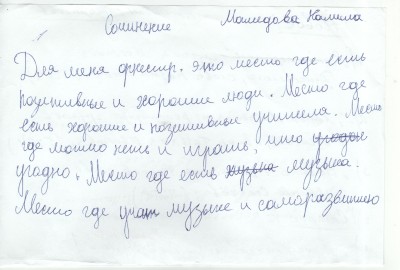 Сочинение Мамидова Камила
Для меня оркестр. это место где есть
позитивные и хорошие люди. Место где
есть хорошие и позетивные учителя. Место
где можно петь и играть, што угодьн
угодно. Место где есть музыка музыка.
Место где учат музыке и саморазвитию